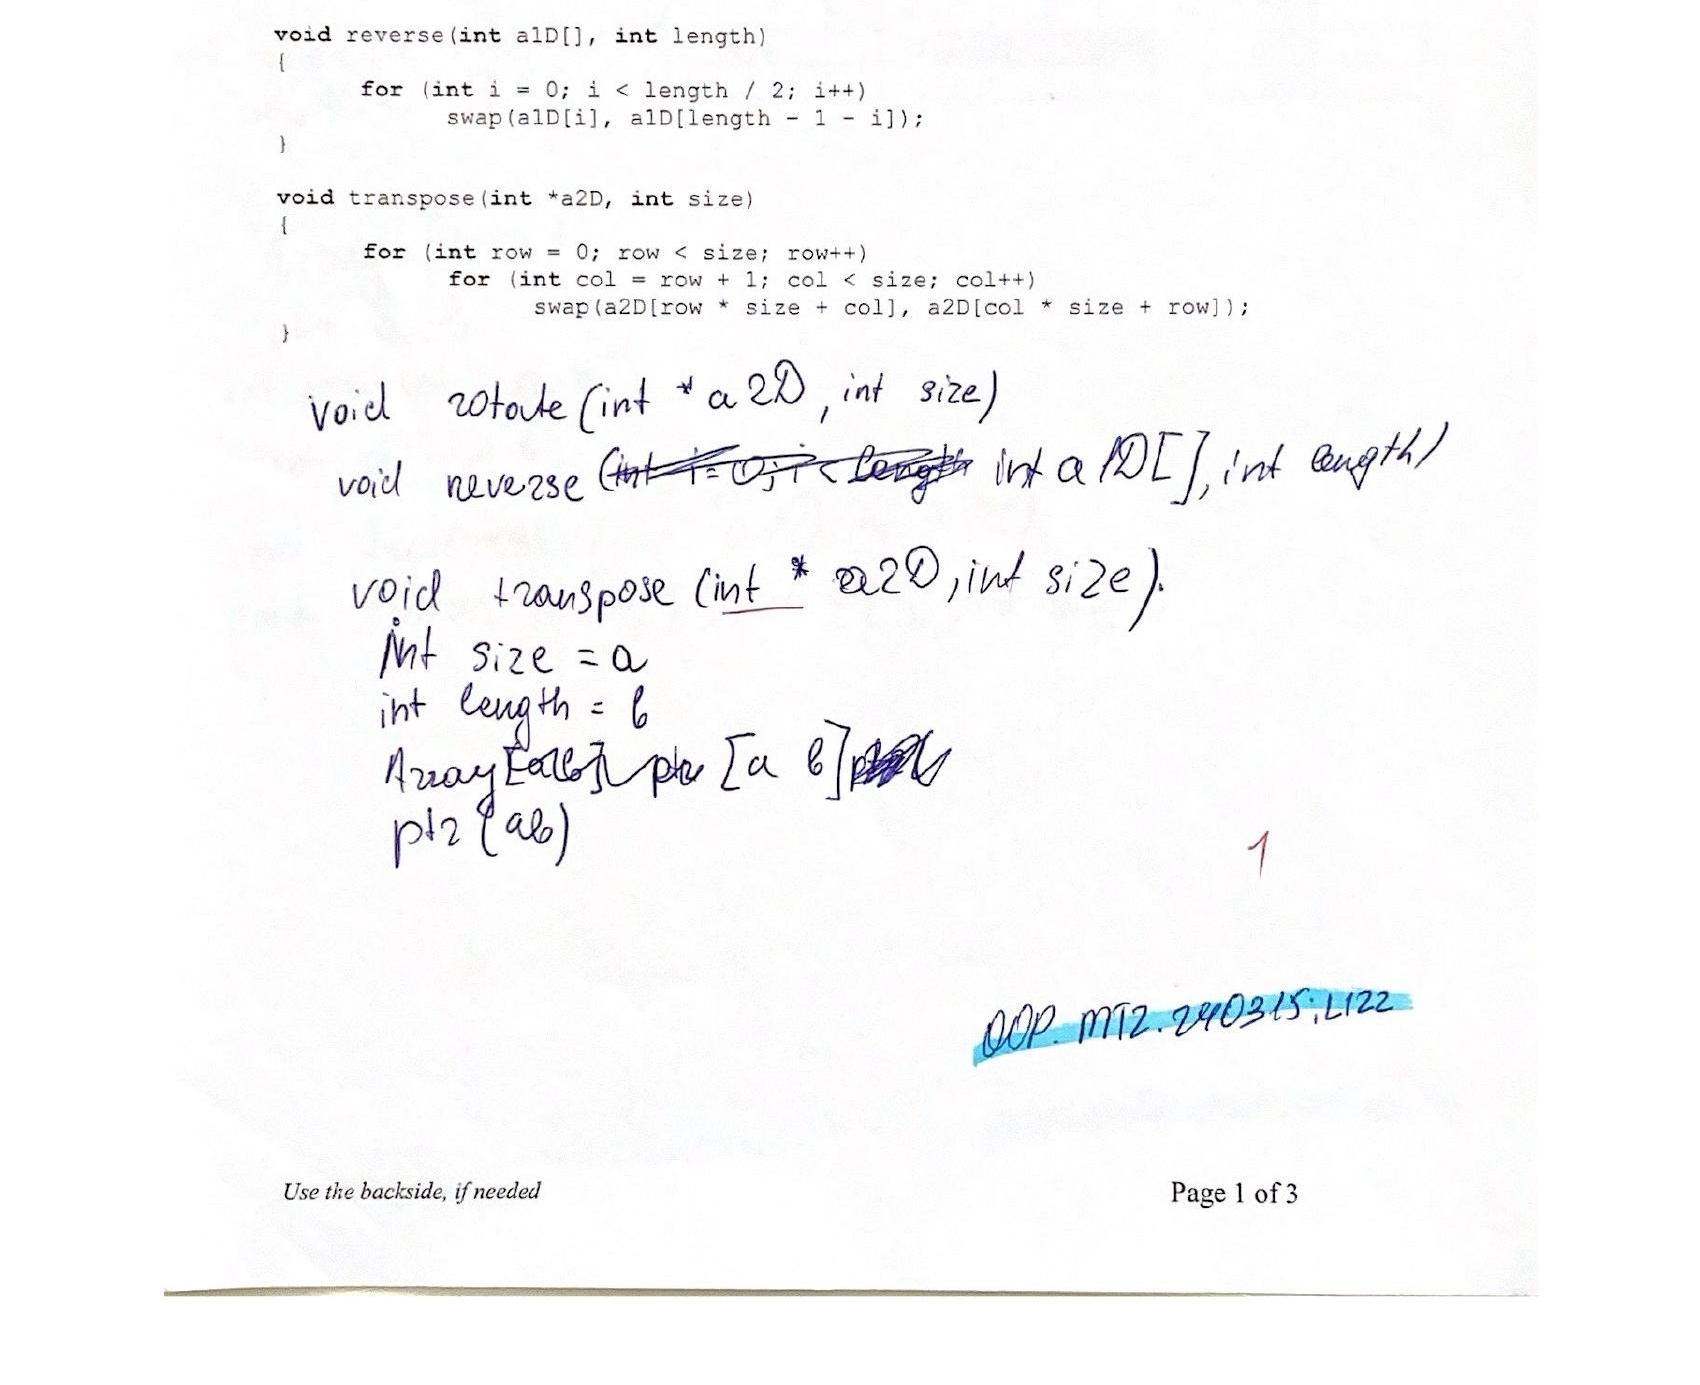 void reverse(int a1D[], int length)
{
for (int i = 0; i < length / 2; i++)
swap(a1D[i], a1D[length - 1 - i]);
}
void transpose(int *a2D, int size)
{
for (int row = 0; row < size; row++)
for (int col = row + 1; col < size; col++)
swap(a2D[row * size + col], a2D[col * size + row]);
}
void rotate (int * a2D, int size)
void reverse (int i=0; i< length int a 1D[], int length)
void transpose (int * a2D, int size).
int size = a
int length = b
Array[ab] ptr [a b]
ptr (ab)
1
OOP. MT2. 240315; L122
Use the backside, if needed
Page 1 of 3